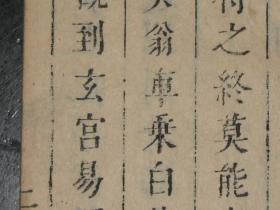 之終莫能
翁專乘白
到玄宮易